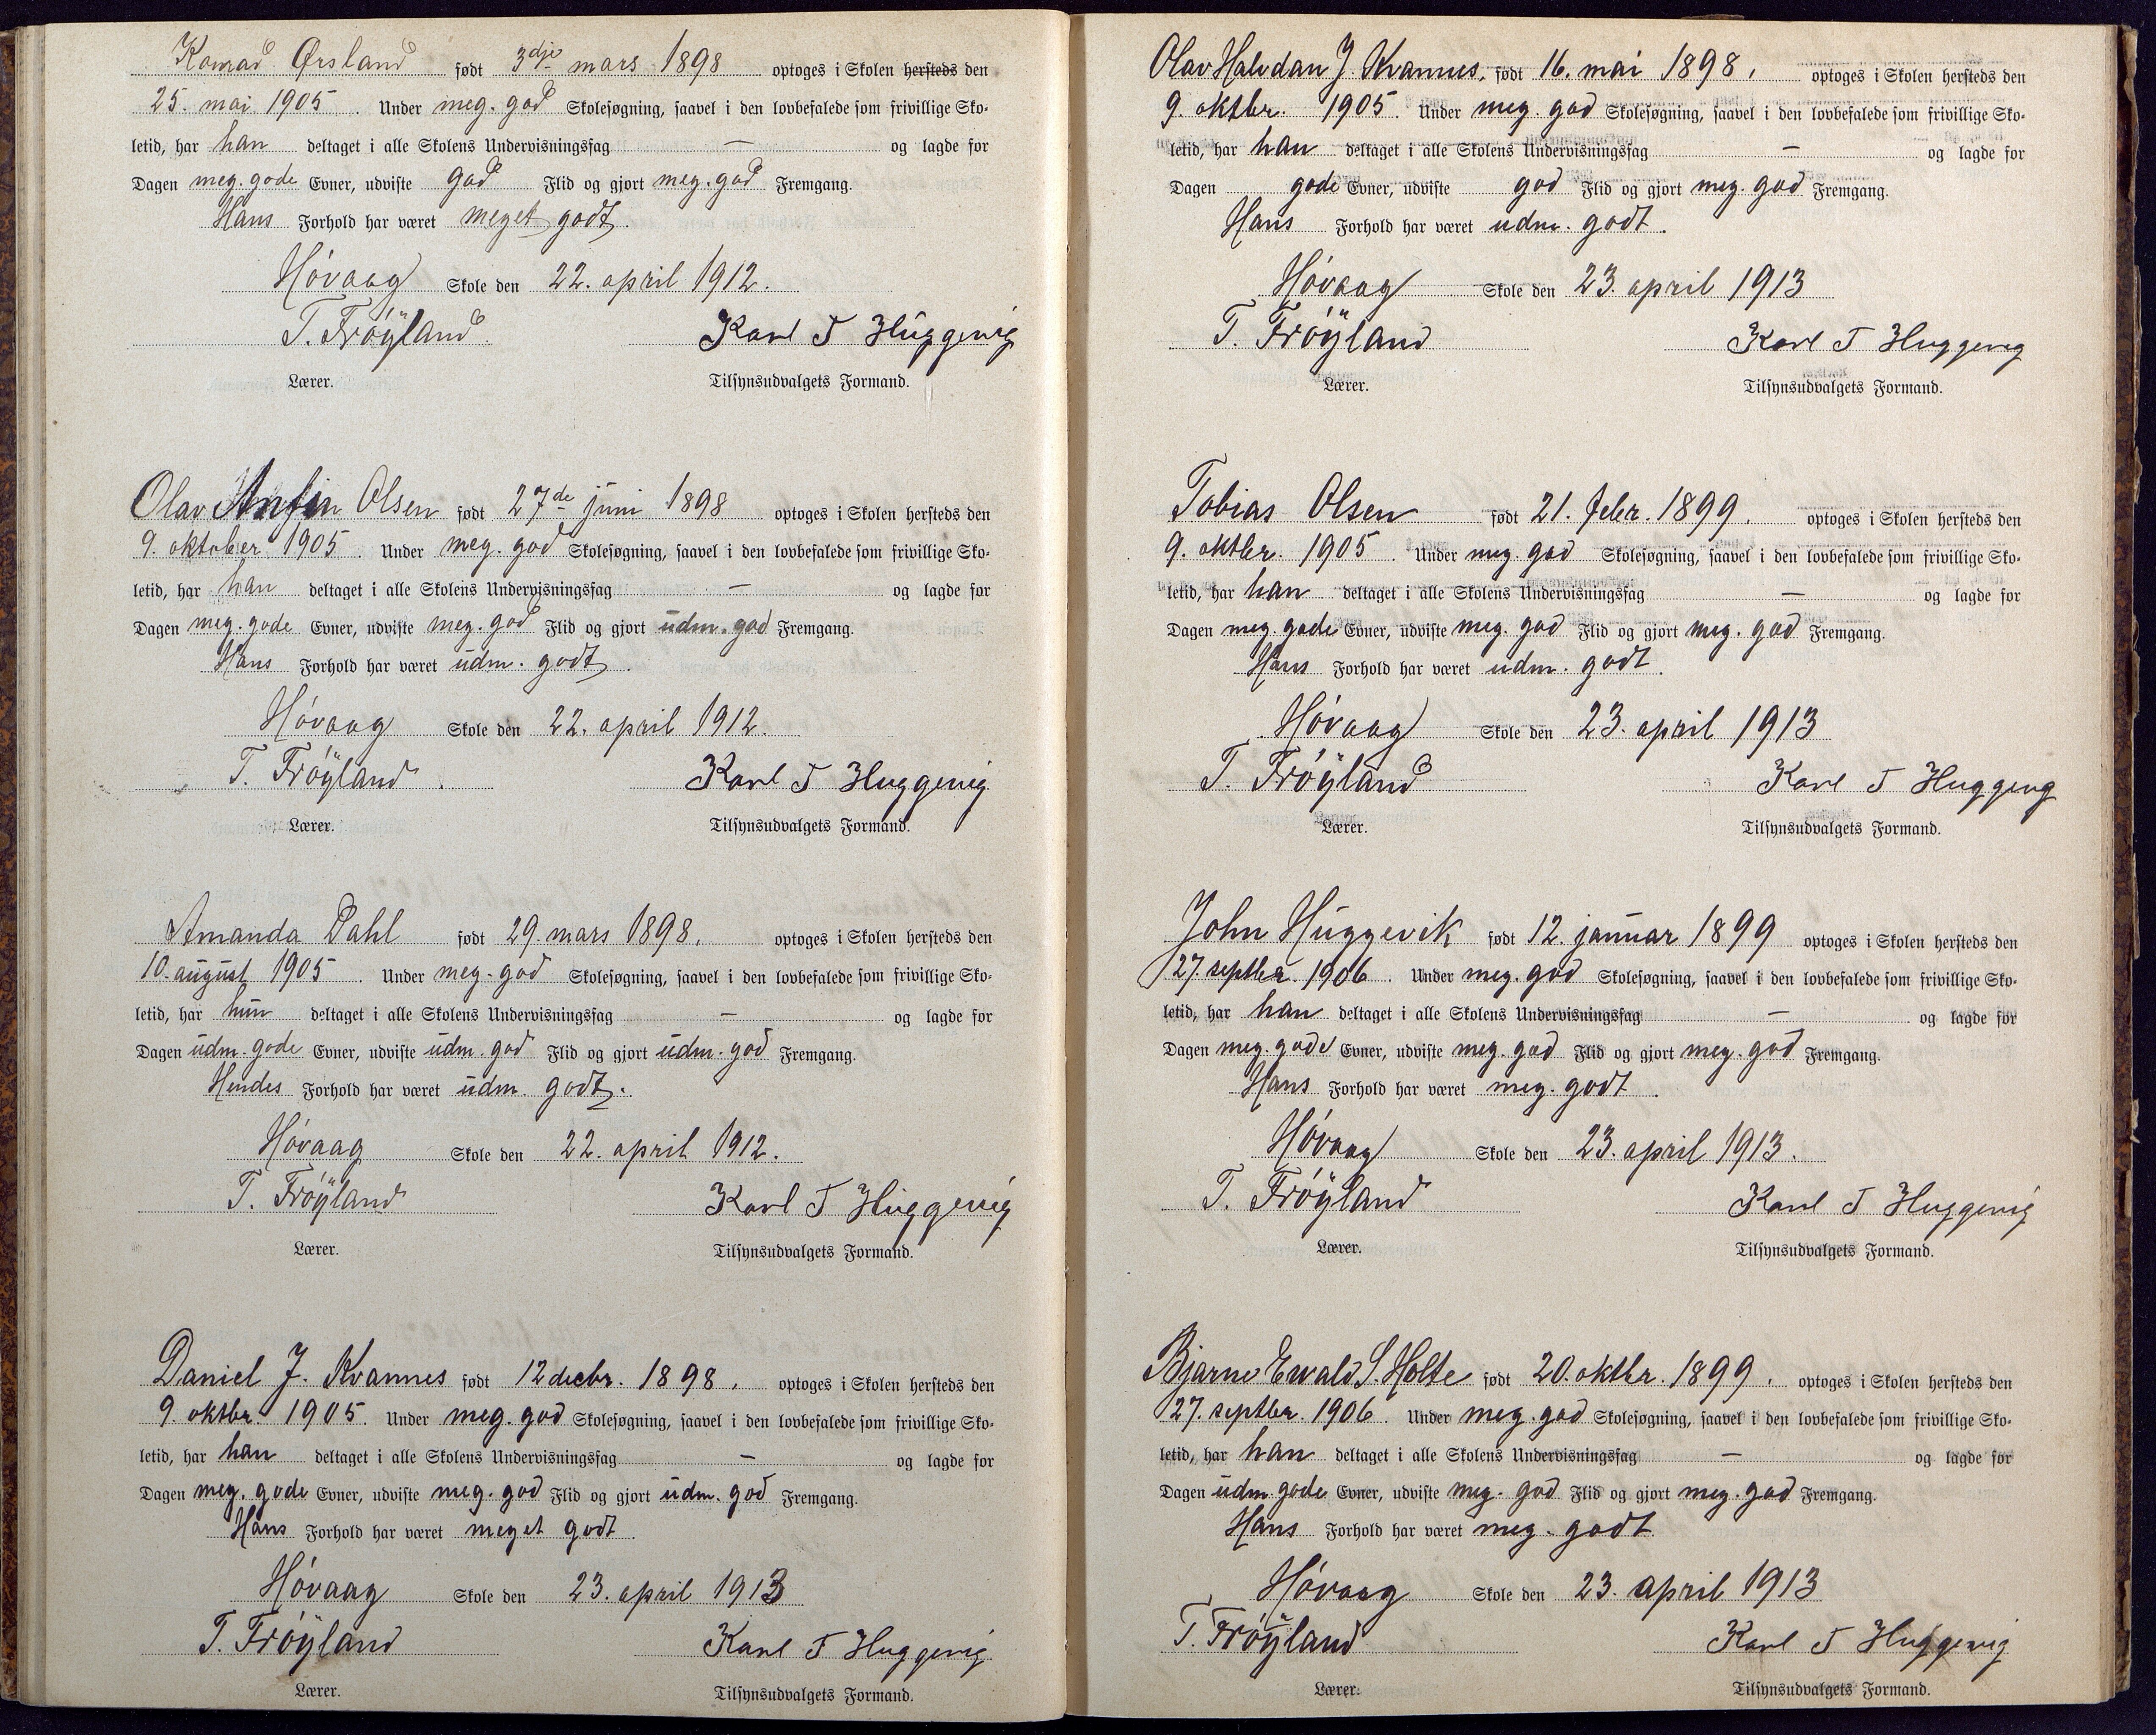 Konrad Ørsland født 3dje mars 1898 optoges i Skolen hersteds den
25. mai 1905. Under meg. god Skolesøgning, saavel i den lovbefalede som frivillige Sko-
letid, har han deltaget i alle Skolens Undervisningsfag — og lagde for
Dagen meg. gode Evner, udviste god Flid og gjort meg. god Fremgang.
Hans Forhold har været meget godt.
Høvaag Skole den 22. april 1912.
T. Frøyland Karl T Huggevig
Lærer. Tilsynsudvalgets Formand.
Olav Anfin Olsen født 27de juni 1898 optoges i Skolen hersteds den
9. oktober 1905. Under meg. god Skolesøgning, saavel i den lovbefalede som frivillige Sko-
letid, har han deltaget i alle Skolens Undervisningsfag — og lagde for
Dagen meg. gode Evner, udviste meg. god Flid og gjort udm. god Fremgang.
Hans Forhold har været udm. godt.
Høvaag Skole den 22. april 1912.
T. Frøyland Karl T Huggevig
Lærer. Tilsynsudvalgets Formand.
Amanda Dahl født 29. mars 1898. optoges i Skolen hersteds den
10. august 1905. Under meg. god Skolesøgning, saavel i den lovbefalede som frivillige Sko-
letid, har hun deltaget i alle Skolens Undervisningsfag — og lagde for
Dagen udm. gode Evner, udviste udm. god Flid og gjort udm. god Fremgang.
Hendes Forhold har været udm. godt.
Høvaag Skole den 22. april 1912.
T. Frøyland Karl T Huggevig
Lærer. Tilsynsudvalgets Formand.
Daniel J. Kvannes født 12 decbr. 1898. optoges i Skolen hersteds den
9. oktbr. 1905. Under meg. god Skolesøgning, saavel i den lovbefalede som frivillige Sko-
letid, har han deltaget i alle Skolens Undervisningsfag — og lagde for
Dagen meg. gode Evner, udviste meg. god Flid og gjort udm. god Fremgang.
Hans Forhold har været meget godt.
Høvaag Skole den 23. april 1913
T. Frøyland Karl T Huggevig
Lærer. Tilsynsudvalgets Formand.
Olav Halvdan J. Kvannes, født 16. mai 1898, optoges i Skolen hersteds den
9. oktbr. 1905. Under meg. god Skolesøgning, saavel i den lovbefalede som frivillige Sko-
letid, har han deltaget i alle Skolens Undervisningsfag — og lagde for
Dagen gode Evner, udviste god Flid og gjort meg. god Fremgang.
Hans Forhold har været udm. godt.
Høvaag Skole den 23. april 1913
T. Frøyland Karl T Huggevig
Lærer. Tilsynsudvalgets Formand.
Tobias Olsen født 21. febr. 1899. optoges i Skolen hersteds den
9. oktbr. 1905. Under meg. god Skolesøgning, saavel i den lovbefalede som frivillige Sko-
letid, har han deltaget i alle Skolens Undervisningsfag — og lagde for
Dagen meg. gode Evner, udviste meg. god Flid og gjort meg. god Fremgang.
Hans Forhold har været udm. godt.
Høvaag Skole den 23. april 1913
T. Frøyland Karl T Huggevig
Lærer. Tilsynsudvalgets Formand.
John Huggevik født 12. januar 1899 optoges i Skolen hersteds den
27. septbr. 1906. Under meg. god Skolesøgning, saavel i den lovbefalede som frivillige Sko-
letid, har han deltaget i alle Skolens Undervisningsfag — og lagde for
Dagen meg. gode Evner, udviste meg. god Flid og gjort meg. god Fremgang.
Hans Forhold har været meg. godt.
Høvaag Skole den 23. april 1913.
T. Frøyland Karl T Huggevig
Lærer. Tilsynsudvalgets Formand.
Bjarne Ewald S. Holte født 20. oktbr. 1899. optoges i Skolen hersteds den
27. septbr. 1906. Under meg. god Skolesøgning, saavel i den lovbefalede som frivillige Sko-
letid, har han deltaget i alle Skolens Undervisningsfag — og lagde for
Dagen udm. gode Evner, udviste meg. god Flid og gjort meg. god Fremgang.
Hans Forhold har været meg. godt.
Høvaag Skole den 23. april 1913
T. Frøyland Karl T Huggevig
Lærer. Tilsynsudvalgets Formand.